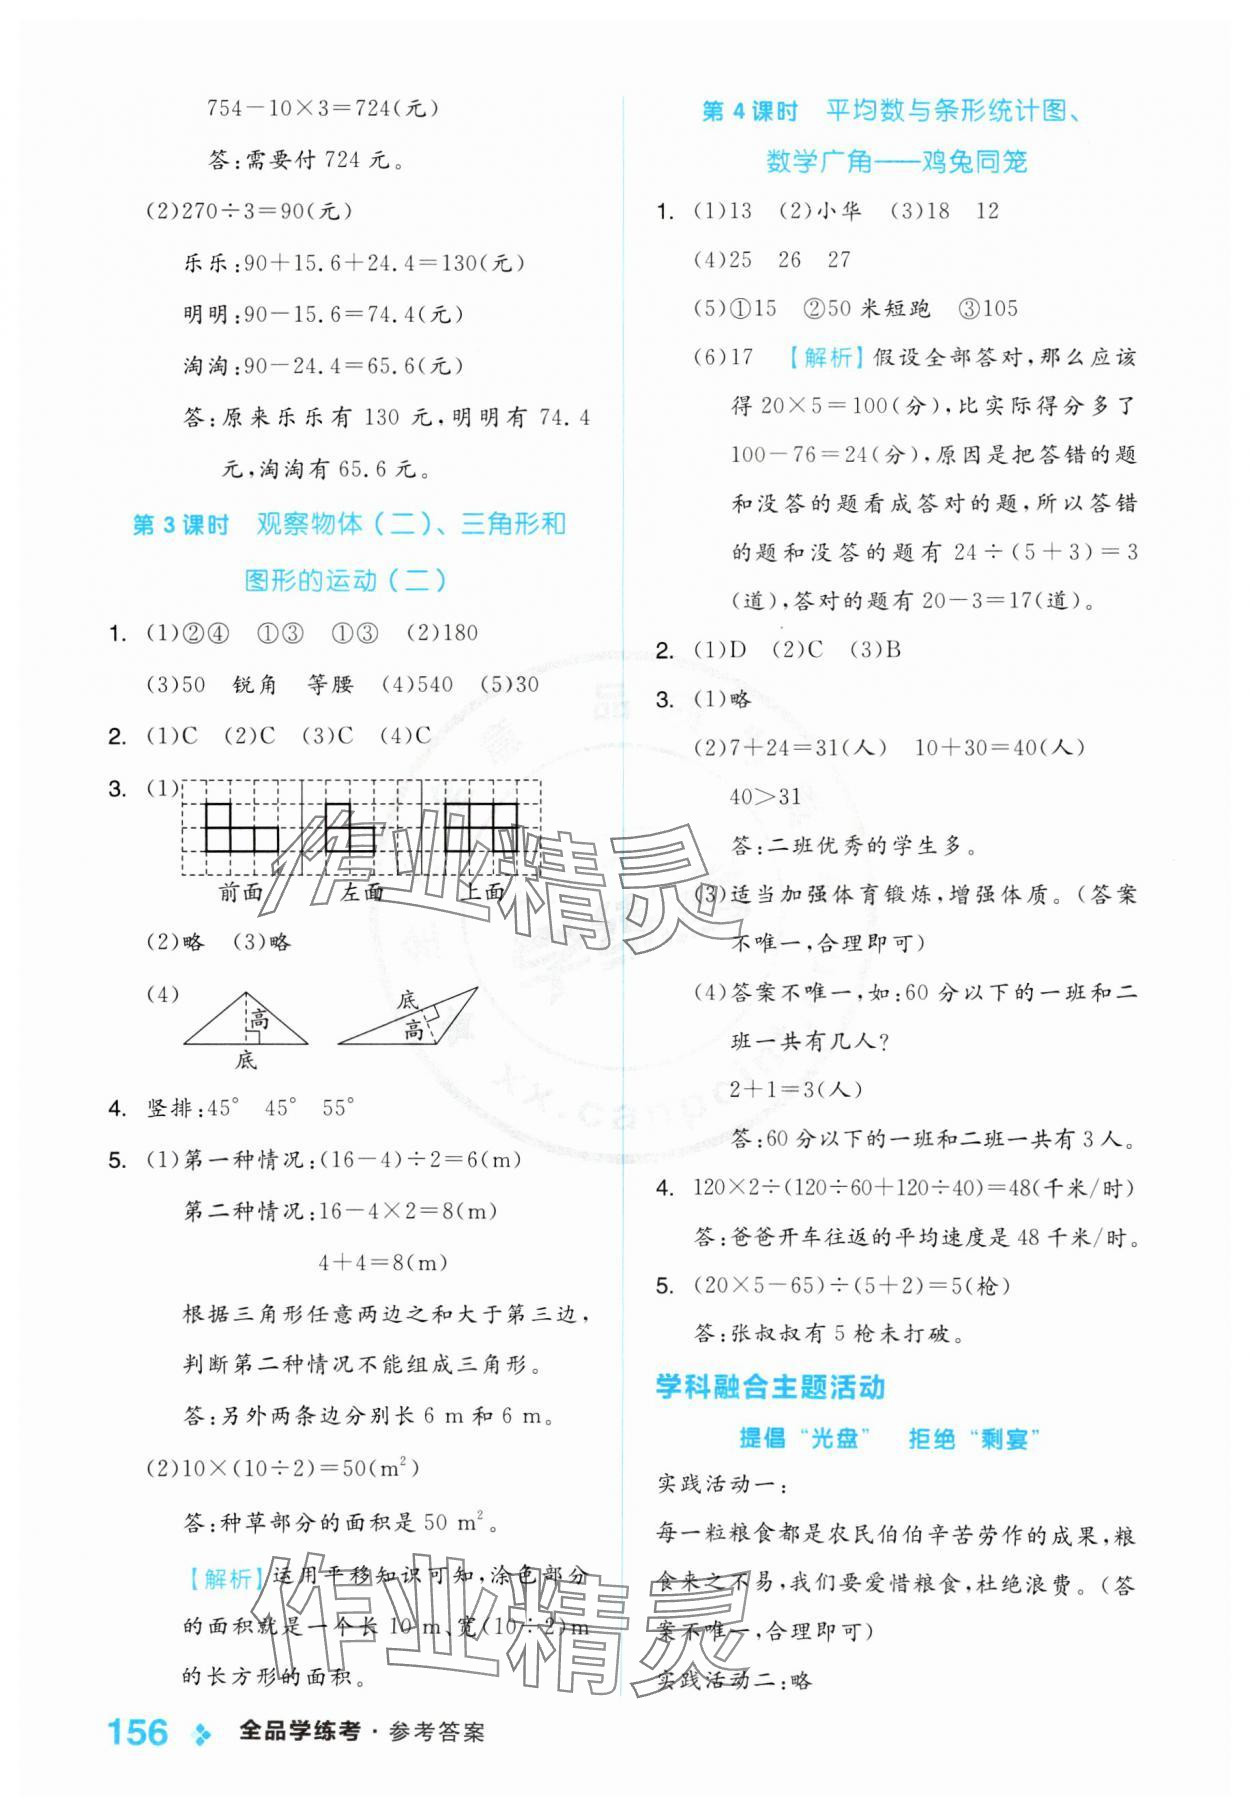 754－10×3＝724(元)
答:需要付 724 元。
(2)270÷3＝90(元)
乐乐:90＋15.6＋24.4＝130(元)
明明:90－15.6＝74.4(元)
淘淘:90－24.4＝65.6(元)
答:原来乐乐有 130 元,明明有 74.4
元,淘淘有 65.6 元。
第 3 课时　观察物体(二)、三角形和
图形的运动(二)
1. (1)②④　①③　①③　(2)180
(3)50　锐角　等腰　(4)540　(5)30
2. (1)C　(2)C　(3)C　(4)C
3. (1)
前面　左面　上面
(2)略　(3)略
(4)
高　底　底　高
4. 竖排:45°　45°　55°
5. (1)第一种情况:(16－4)÷2＝6(m)
第二种情况:16－4×2＝8(m)
4＋4＝8(m)
根据三角形任意两边之和大于第三边,
判断第二种情况不能组成三角形。
答:另外两条边分别长 6 m 和 6 m。
(2)10×(10÷2)＝50(m²)
答:种草部分的面积是 50 m²。
【解析】运用平移知识可知,涂色部分
的面积就是一个长 10 m、宽(10÷2)m
的长方形的面积。
第 4 课时　平均数与条形统计图、
数学广角——鸡兔同笼
1. (1)13　(2)小华　(3)18　12
(4)25　26　27
(5)①15　②50 米短跑　③105
(6)17　【解析】假设全部答对,那么应该
得 20×5＝100(分),比实际得分多了
100－76＝24(分),原因是把答错的题
和没答的题看成答对的题,所以答错
的题和没答的题有 24÷(5＋3)＝3
(道),答对的题有 20－3＝17(道)。
2. (1)D　(2)C　(3)B
3. (1)略
(2)7＋24＝31(人)　10＋30＝40(人)
40＞31
答:二班优秀的学生多。
(3)适当加强体育锻炼,增强体质。(答案
不唯一,合理即可)
(4)答案不唯一,如:60 分以下的一班和二
班一共有几人?
2＋1＝3(人)
答:60 分以下的一班和二班一共有 3 人。
4. 120×2÷(120÷60＋120÷40)＝48(千米/时)
答:爸爸开车往返的平均速度是 48 千米/时。
5. (20×5－65)÷(5＋2)＝5(枪)
答:张叔叔有 5 枪未打破。
学科融合主题活动
提倡“光盘”　拒绝“剩宴”
实践活动一:
每一粒粮食都是农民伯伯辛苦劳作的成果,粮
食来之不易,我们要爱惜粮食,杜绝浪费。(答
案不唯一,合理即可)
实践活动二:略
156　全品学练考·参考答案
作业精灵
作业精灵